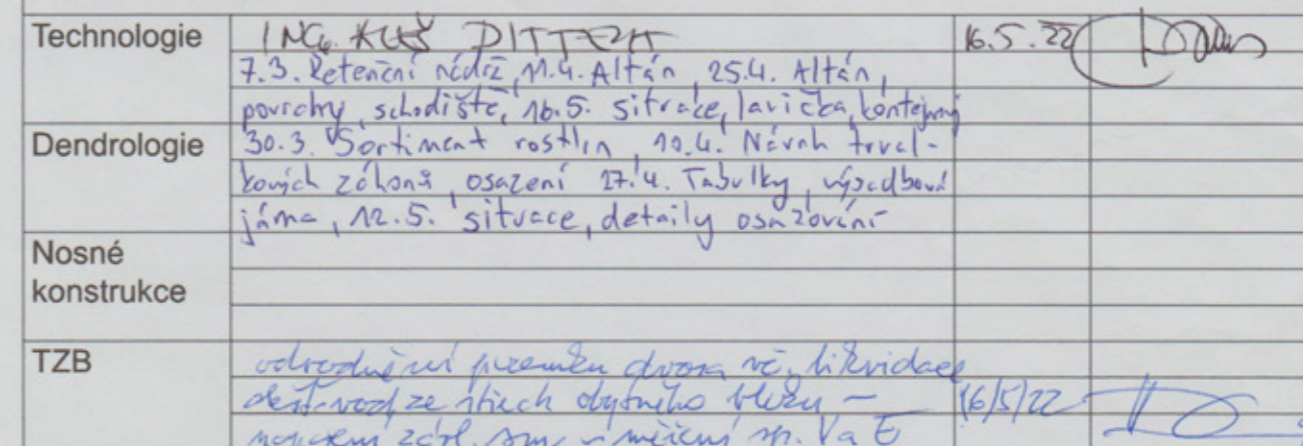 Technologie ING. ALEŠ DITTERT 16.5.22
7.3. Retenční nádrž, 11.4. Altán, 25.4. Altán,
povrchy, schodiště, 16.5. situace, lavička, kontejnery
Dendrologie 30.3. Sortiment rostlin, 10.4. Návrh trval-
kových záhonů, osazení 27.4. Tabulky, výsadbová
jáma, 12.5. situace, detaily osazování
Nosné
konstrukce
TZB odvodnění pozemku dvora vč. likvidace
dešť. vod ze střech obytného bloku – 16/5/22